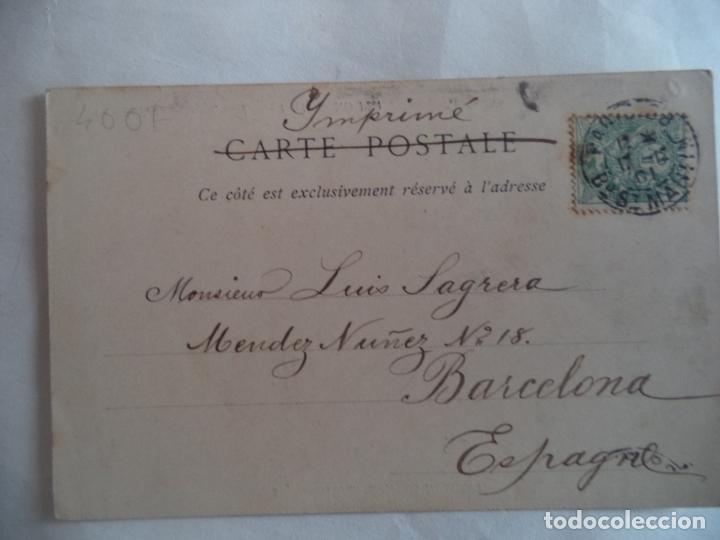 4001
Imprimé
CARTE POSTALE
Ce côté est exclusivement réservé à l'adresse
Monsieur Luis Sagrera
Mendez Nuñez Nº 18.
Barcelona
Espagne
todocoleccion
todocoleccion.net